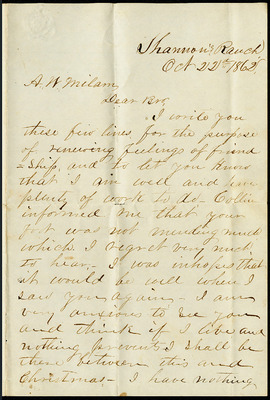 Shannon's Ranch
Oct 22th 1862
A. W. Milam
Dear Bro,
I write you
these few lines for the purpose
of renewing feelings of friend
=ship, and to let you know
that I am well and have
plenty of work to do. Collin
informed me that your
foot was not mending much
which I regret very much
to hear. I was in hopes that
it would be well when I
saw you again. I am
very anxious to see you
and think if I live and
nothing prevents I shall be
there between this and
Christmas - I have nothing